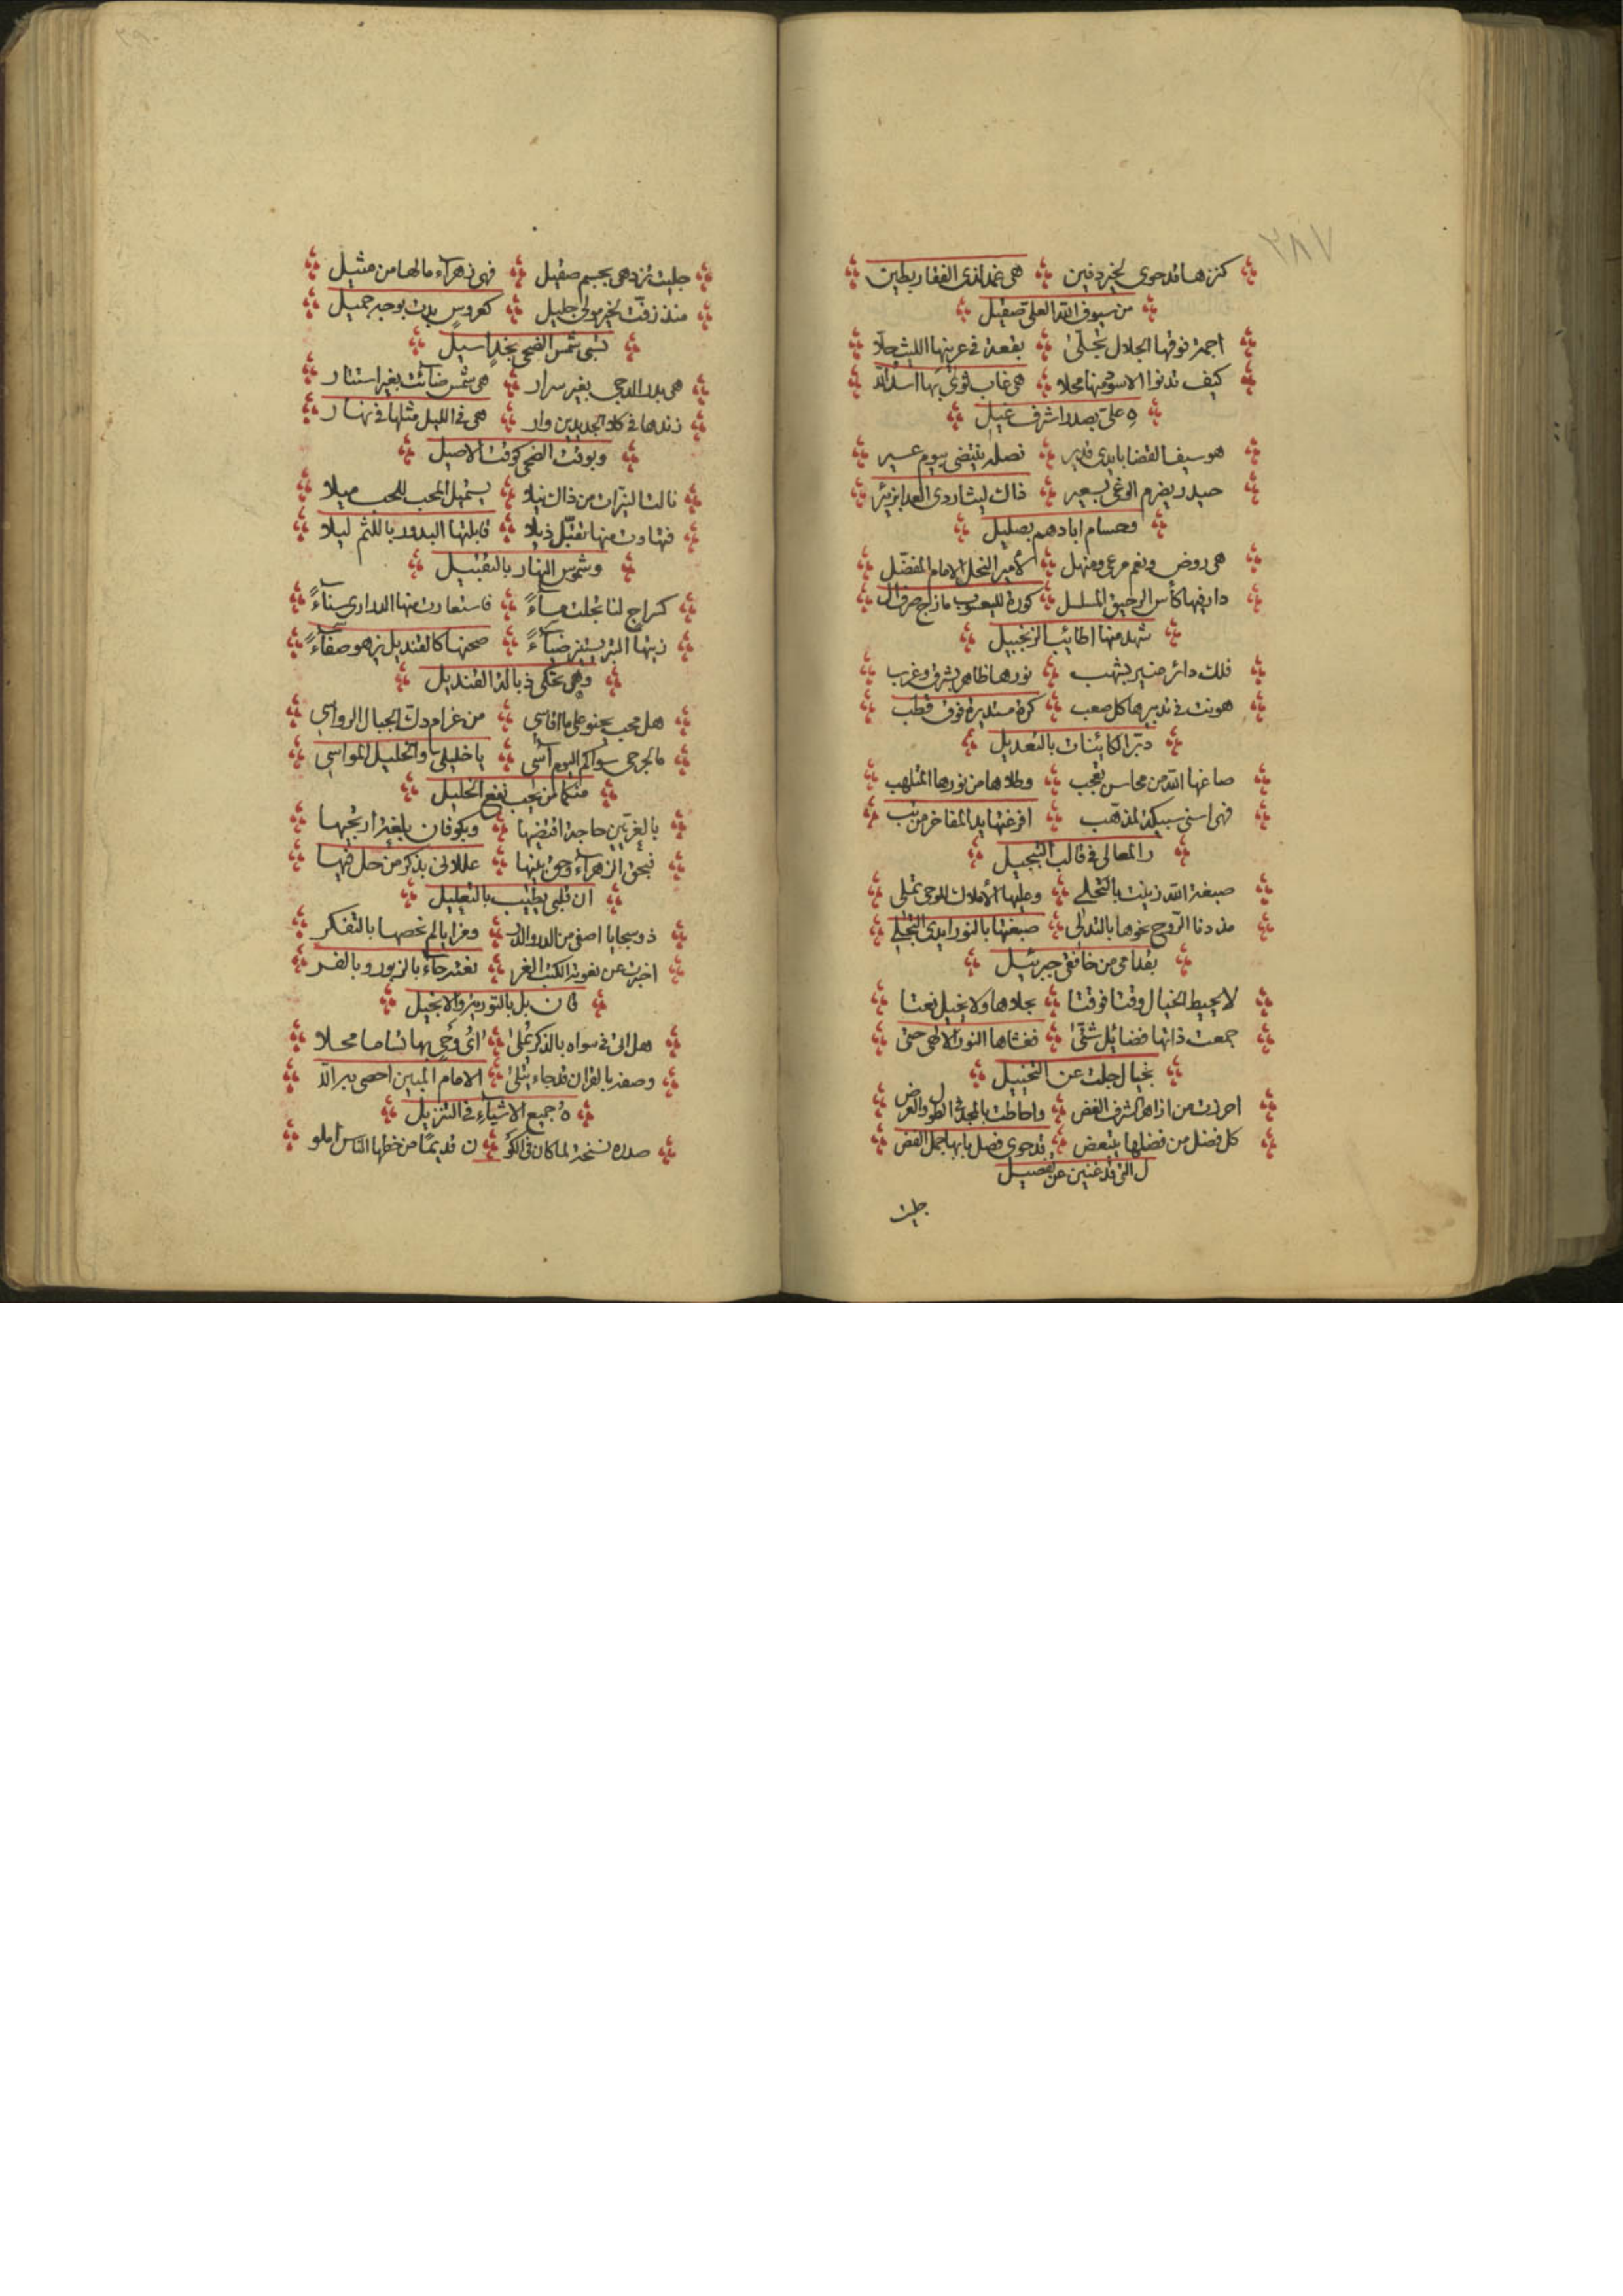 ٢٨٧
كنزها قد حوى لخير دفين هي غمد لذي الفقار بطين
من سيوف الله العلي صقيل
اجمة فوقها الجلال تجلى بقعة في عرينها الليث حلا
كيف تدنوا الاسود منها محلا هي غاب ثوى بها اسد الله
ه علي بصدر اشرف غيل
هو سيف القضا بايدي قدير نصله ينتضى بيوم عسير
حيدر يضرم الوغى بسعير ذاك ليث اردى العدا بزئير
وحسام ابادهم بصليل
هي روض ونعم مرعى ومنهل لأمير النحل الامام المفضل
دار فيها كأس الرحيق المسلسل كورة لليعسوب مازج صرف ال
شهد منها اطائب الزنجبيل
فلك دائر منير بشهب نورها ظاهر بشرق وغرب
هونت في تدبيرها كل صعب كرة مستديرة فوق قطب
دبر الكائنات بالتعديل
صاغها الله من محاسن تعجب وطلاها من نورها المتلهب
فهي اسنى سبيكة لمذهب افرغتها يد المفاخر من تب
ر المعالي في قالب التبجيل
صبغة الله زينت بالتحلي وعليها الأملاك للوحي تملي
مذ دنا الروح نحوها بالتدلي صبغتها بالنور ايدي التجلي
بقدامى من خافقي جبرئيل
لا يحيط الخيال وقتا فوقتا بجلاها ولا يخيل نعتا
جمعت ذاتها فضائل شتى فغشاها النور الالهي حتى
بخيال جلت عن التخييل
احرزت من ازاهر الشرف الغض واحاطت بالمجد في الطول والعرض
كل فضل من فضلها يتبعض قد حوى فصل بابها جمل الفض
ل التي قد غنين عن تفصيل
جليت
٢٩٠
جليت تزدهي بجسم صقيل فهي زهرآء مالها من مثيل
منذ زفت لخير مولى جليل كعروس بدت بوجه جميل
تسبي شمس الضحى بخد اسيل
هي بدر الدجى بغير سرار هي شمس ضائت بغير استتار
زندها في كلا الجديدين وار هي في الليل مثلها في نهار
وبوقت الضحى كوقت الاصيل
نالت النيرات من ذاك نيلا يستميل المحب للحب ميلا
فتهاوت منها تقبل ذيلا قابلتها البدور باللثم ليلا
وشموس النهار بالتقبيل
كسراج لنا تجلت مساءً فاستعارت منها الدراري سناءً
زيتها المستنير ضياءً صحنها كالقنديل يزهو صفاءً
وهي تحكي ذبالة القنديل
هل محب يحنو على ما اقاسي من غرام دك الجبال الرواسي
ما لجرحي سواكم اليوم آسي يا خليلي والخليل المواسي
منكما لمن يحب نفع الخليل
بالغريين حاجة اقتضيها وبكوفان بلغة ارتجيها
فبحق الزهرآء وحق بنيها عللاني بذكر من حل فيها
ان قلبي يطيب بالتعليل
ذو سجايا اصفى من الدر والدر ومزايا لم نحصها بالتفكر
اخبرت عن نعوته الكتب الغر نعته جاء بالزبور وبالفر
قان بل بالتورية والانجيل
هل اتى في سواه بالذكر تملى اي وحي بها تسامى محلا
وصفه بالقران قد جاء يتلى الامام المبين احصى به الله
ه جميع الاشياء في التنزيل
صدره نسخة لما كان في الكو ن قديما من خطها الناس املو